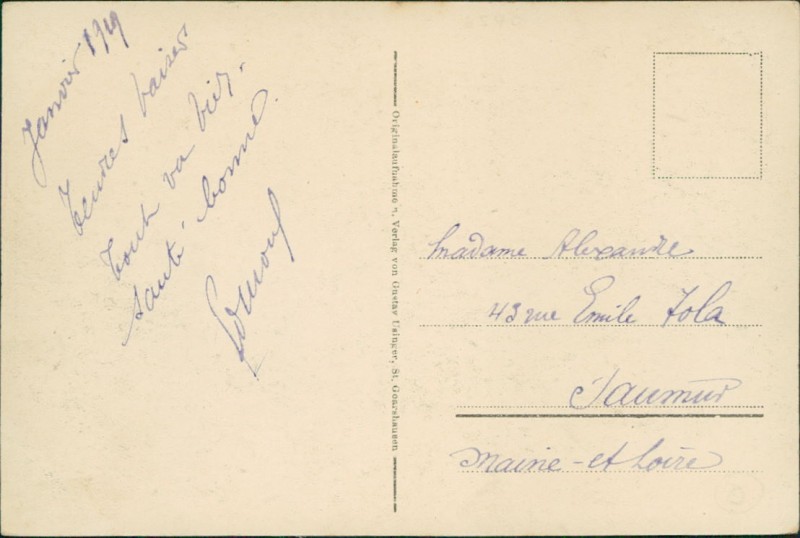 Janvier 1919
Tendres baiser
tout va bien.
santé bonne.
Originalaufnahme u. Verlag von Gustav Usinger, St. Goarshausen
Madame Alexandre
43 rue Emile Zola
Saumur
Maine-et Loire